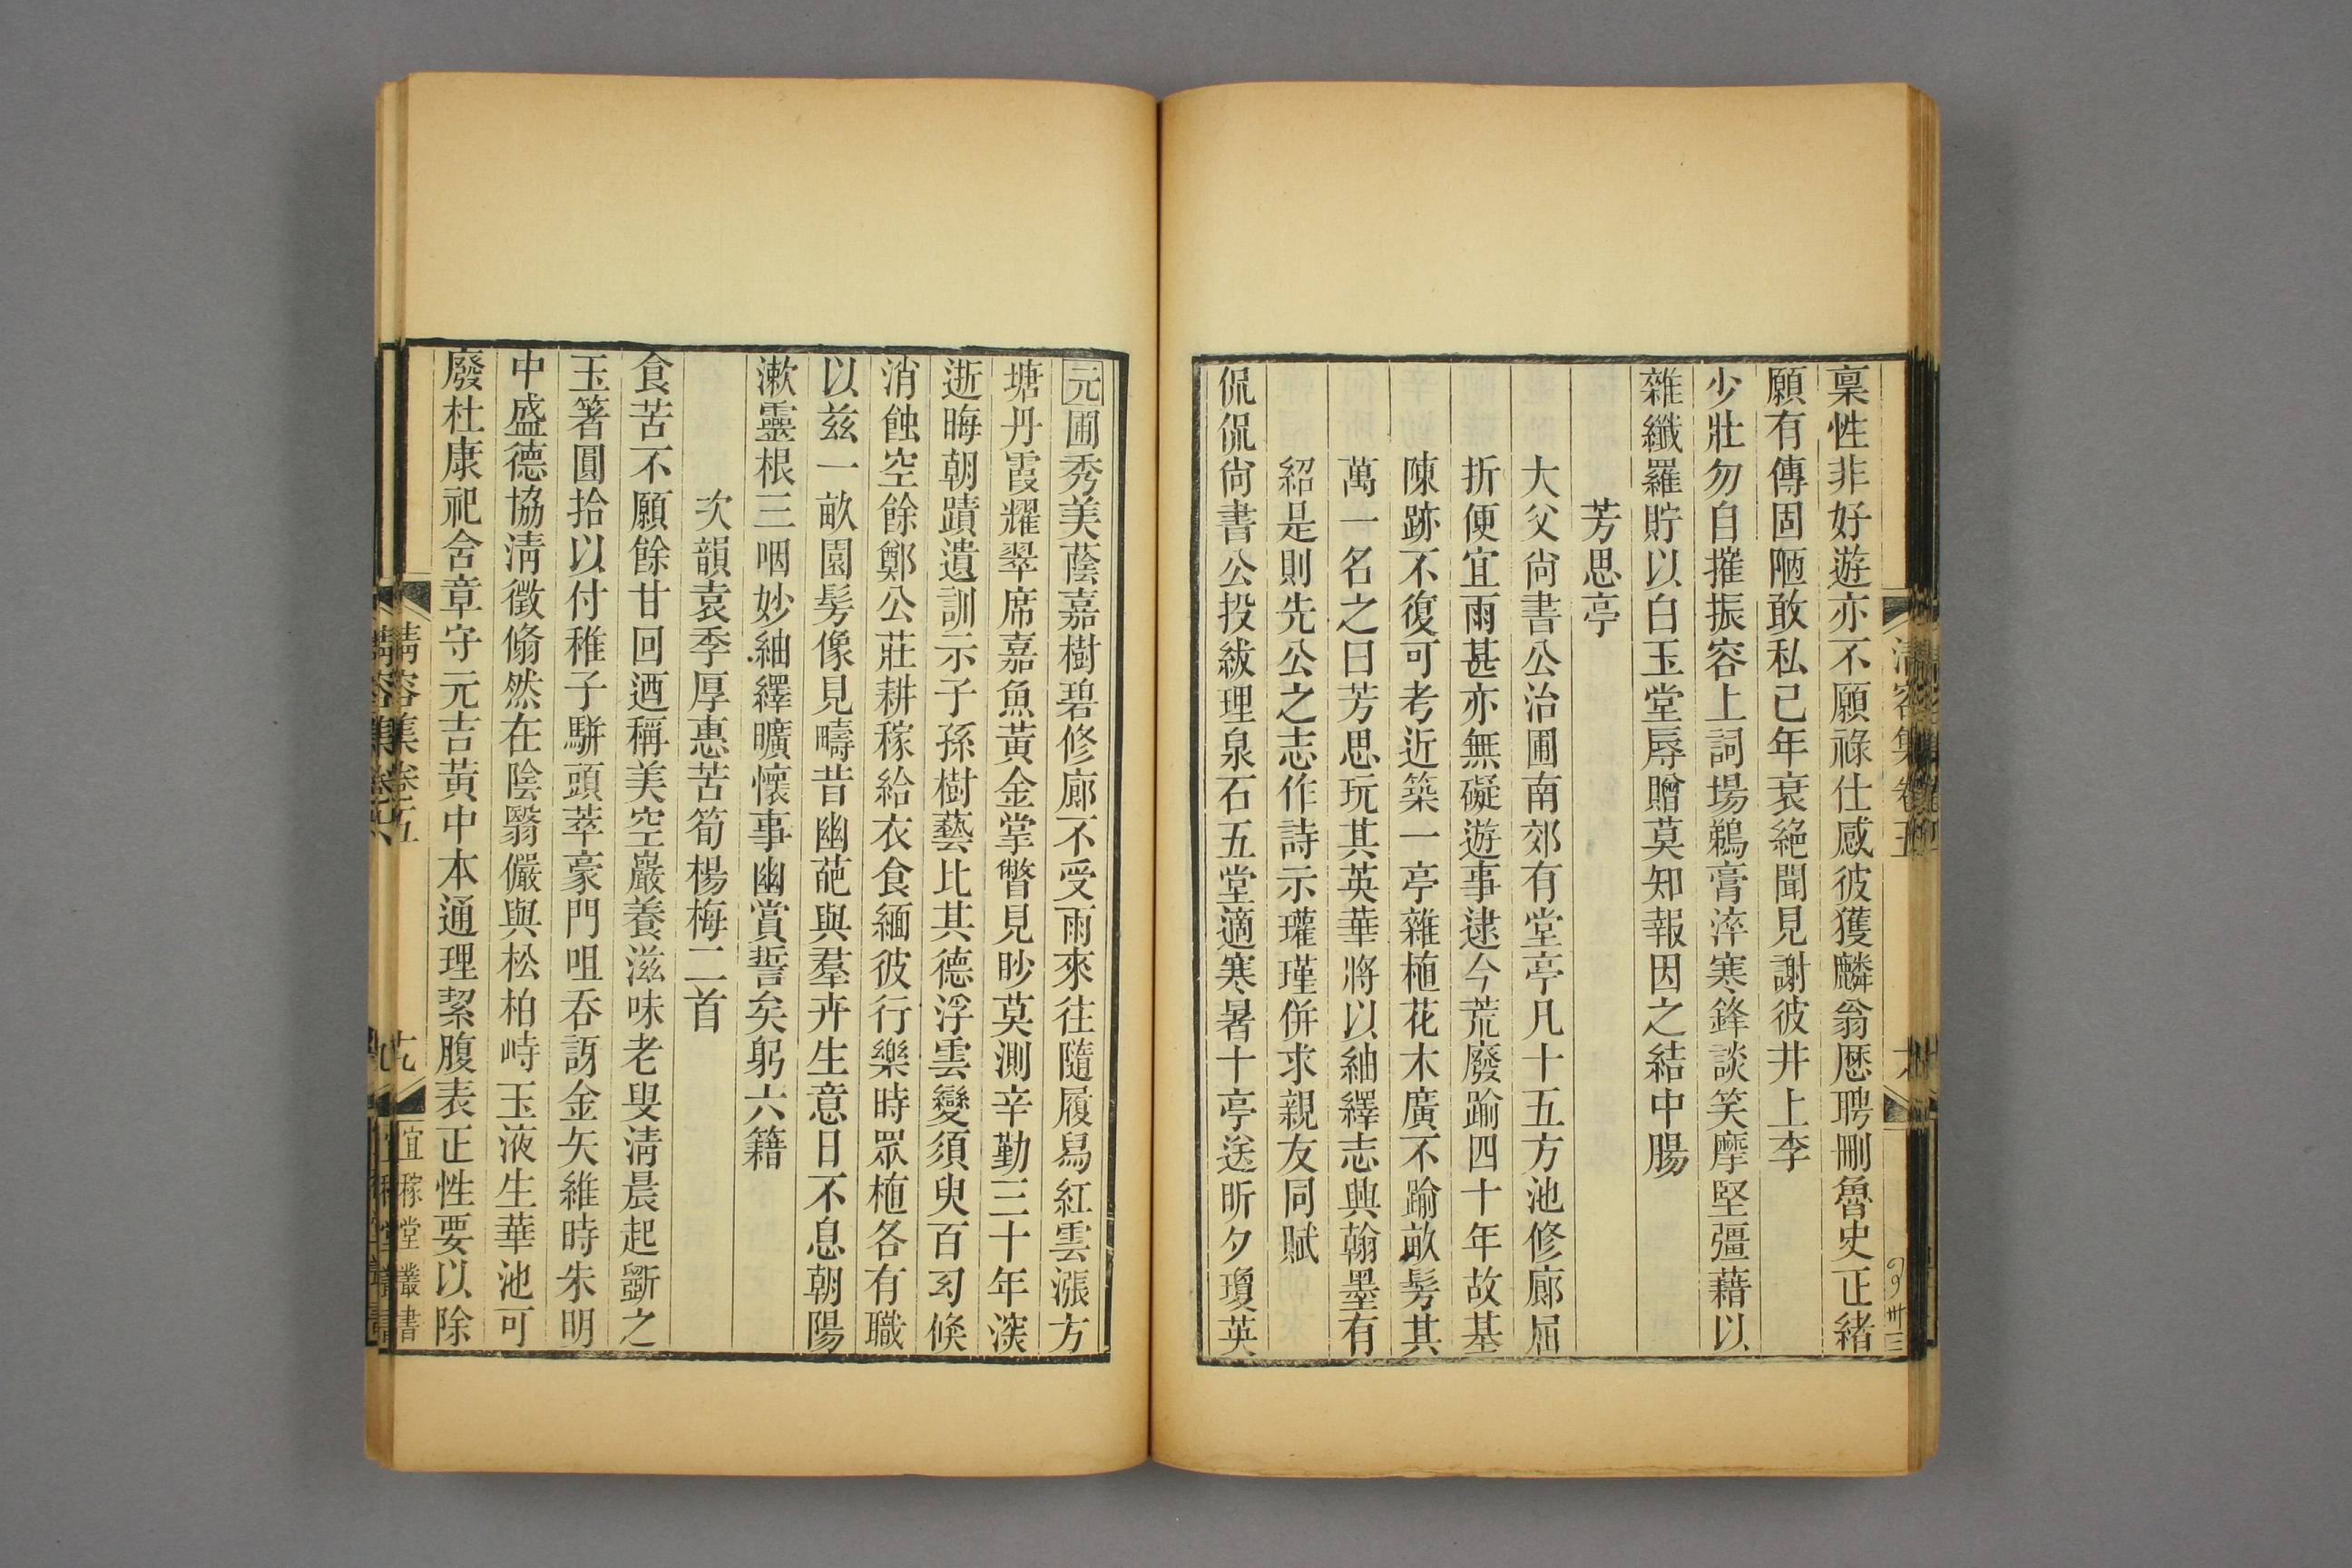 稟性非好遊亦不願祿仕感彼獲麟翁厯聘刪魯史正緒
願有傳固陋敢私己年衰絶聞見謝彼井上李
少壯勿自摧振容上詞塲鵜膏淬寒鋒談笑摩堅彊藉以
雜纖羅貯以白玉堂辱贈莫知報因之結中腸
芳思亭
大父尙書公治圃南郊有堂亭凡十五方池修廊屈
折便宜雨甚亦無礙遊事逮今荒廢踰四十年故基
陳跡不復可考近築一亭雜植花木廣不踰畝髣其
萬一名之曰芳思玩其英華將以紬繹志典翰墨有
紹是則先公之志作詩示瓘瑾併求親友同賦
侃侃尙書公投紱理泉石五堂適寒暑十亭送昕夕瓊英
元圃秀美蔭嘉樹碧修廊不受雨來往隨履舄紅雲漲方
塘丹霞耀翠席嘉魚黃金掌瞥見眇莫測辛勤三十年深
逝晦朝蹟遺訓示子孫樹藝比其德浮雲變須臾百㓚倏
消蝕空餘鄭公莊耕稼給衣食緬彼行樂時眾植各有職
以茲一畝園髣像見疇昔幽葩與羣卉生意日不息朝陽
漱靈根三咽妙紬繹曠懷事幽賞誓矣躬六籍
次韻袁季厚惠苦筍楊梅二首
食苦不願餘甘回迺稱美空巖養滋味老叟淸晨起斸之
玉箸圓拾以付稚子駢頭萃豪門咀吞訝金矢維時朱明
中盛德協淸徵翛然在陰翳儼與松柏峙玉液生華池可
廢杜康祀含章守元吉黃中本通理絜腹表正性要以除
淸容集卷五
九
宜稼堂叢書